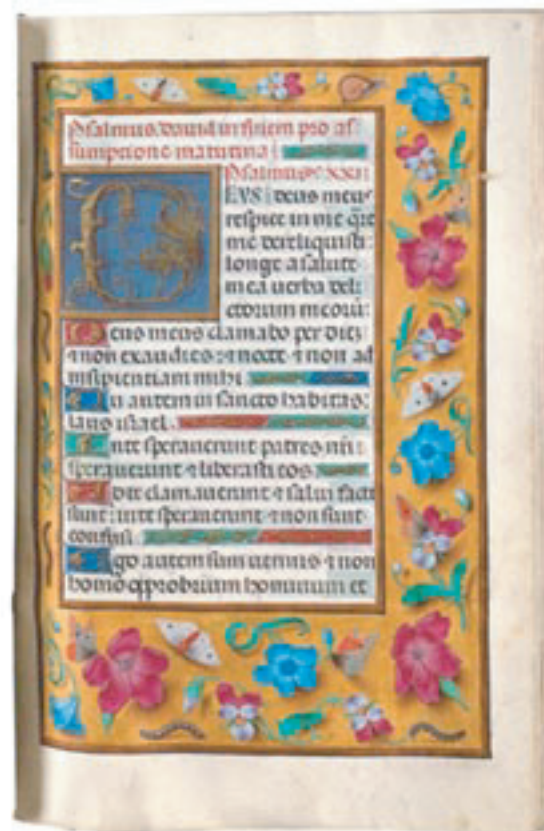 Psalmus david in finem pro as
sumptione matutina
Psalmus xxi
EVS deus meus
respice in me q̄re
me dereliquisti:
longe a salute
mea verba deli
ctorum meorū:
Deus meus clamabo per diē:
⁊ non exaudies: ⁊ nocte ⁊ non ad
insipientiam mihi
Tu autem in sancto habitas:
laus israel
In te speraverunt patres nr̄i:
speraverunt ⁊ liberasti eos
Ad te clamaverunt ⁊ salvi facti
sunt: in te speraverunt ⁊ non sunt
confusi
Ego autem sum vermis ⁊ non
homo opprobrium hominum et